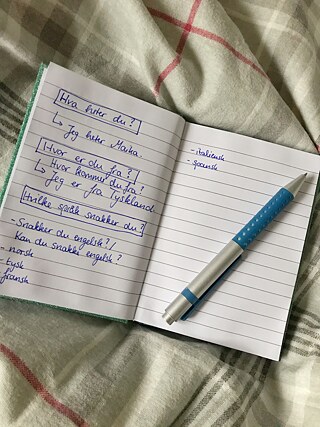 Hva heter du?
↳ Jeg heter Maika
Hvor er du fra?
↳ Hvor kommer du fra?
↳ Jeg er fra Tyskland
Hvilke språk snakker du?
- Snakker du engelsk? /
Kan du snakke engelsk?
- norsk
- tysk
- fransk
- italiensk
- spansk